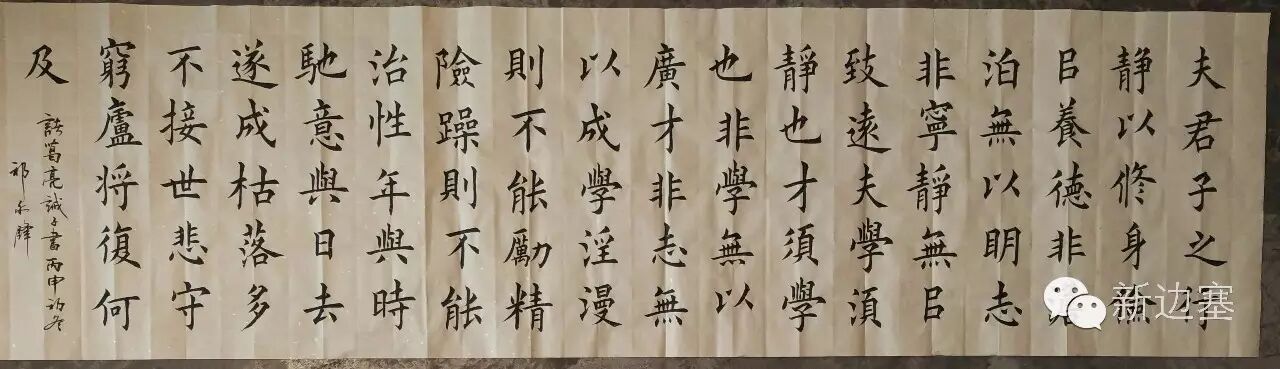 夫君子之行
靜以修身儉
㠯養德非
泊無以明志
非寧靜無㠯
致遠夫學須
靜也才須學
也非學無以
廣才非志無
以成學淫漫
則不能勵精
險躁則不能
治性年與時
馳意與日去
遂成枯落多
不接世悲守
窮廬将復何
及
諸葛亮誡子書丙申初冬
祁
新边塞